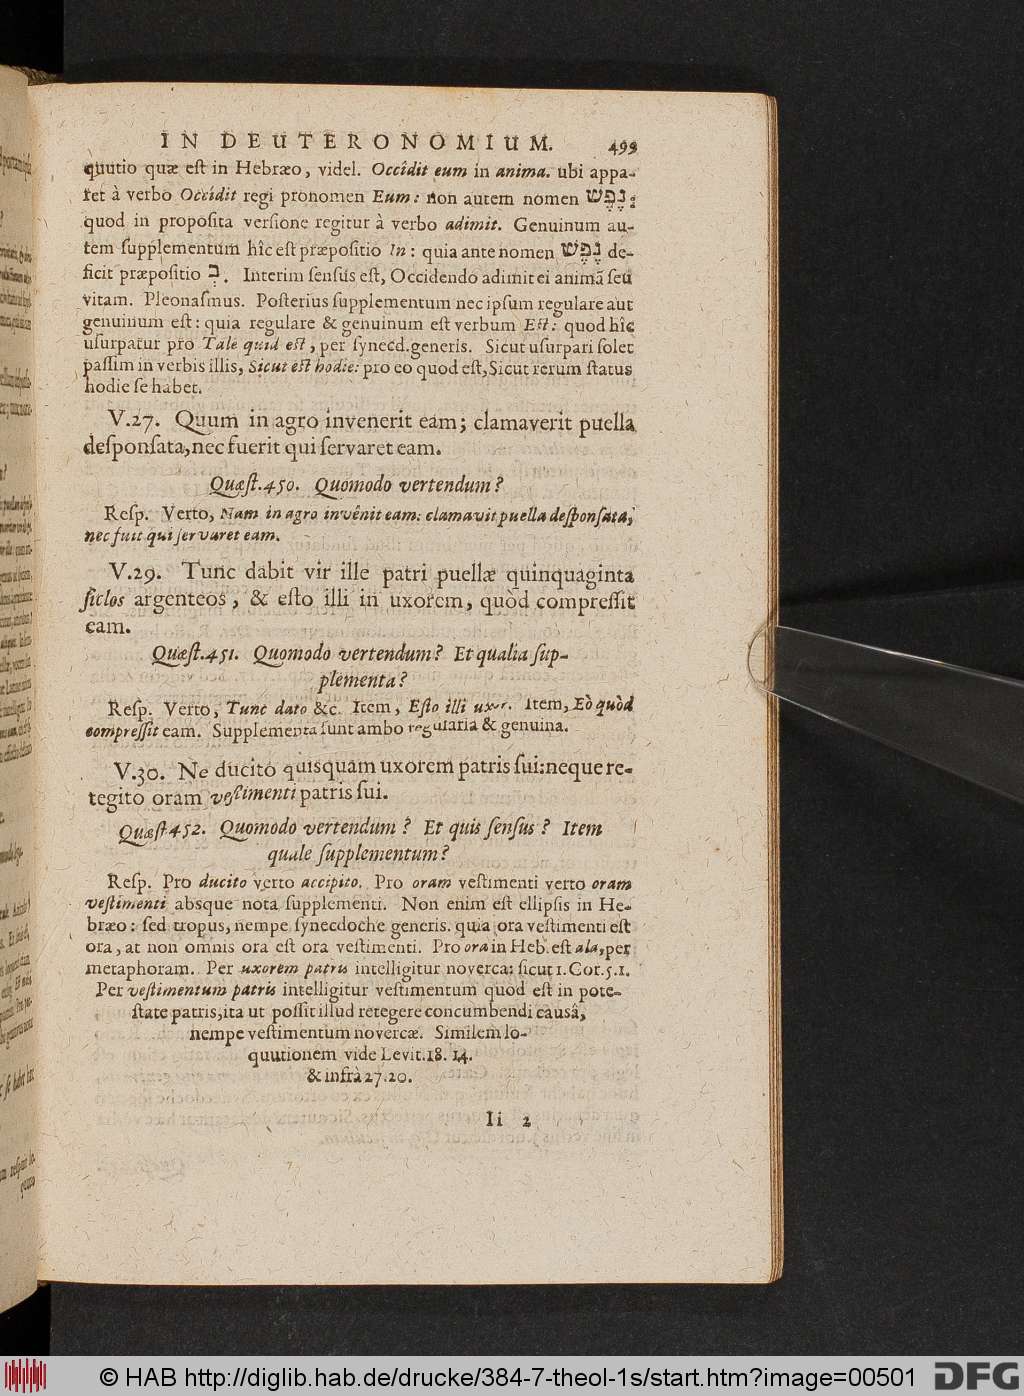 IN DEUTERONOMIUM. 499
quutio quæ eſt in Hebræo, videl. Occîdit eum in anima. ubi appa-
ret à verbo Occîdit regi pronomen Eum: non autem nomen נֶפֶשׁ;
quod in propoſita verſione regitur à verbo adimit. Genuinum au-
tem ſupplementum hîc eſt præpoſitio In: quia ante nomen נֶפֶשׁ de-
ficit præpoſitio בְּ. Interim ſenſus eſt, Occidendo adimit ei animã ſeu
vitam. Pleonaſmus. Poſterius ſupplementum nec ipſum regulare aut
genuinum eſt: quia regulare & genuinum eſt verbum Eſt: quod hîc
uſurpatur pro Tale quid eſt, per ſynecd. generis. Sicut uſurpari ſolet
paſſim in verbis illis, Sicut eſt hodie: pro eo quod eſt, Sicut rerum ſtatus
hodie ſe habet.
V.27. Quum in agro invenerit eam; clamaverit puella
deſponſata, nec fuerit qui ſervaret eam.
Quæſt.450. Quomodo vertendum?
Reſp. Verto, Nam in agro invênit eam: clamavit puella deſponſata,
nec fuit qui ſervaret eam.
V.29. Tunc dabit vir ille patri puellæ quinquaginta
ſiclos argenteos, & eſto illi in uxorem, quòd compreſſit
eam.
Quæſt.451. Quomodo vertendum? Et qualia ſup-
plementa?
Reſp. Verto, Tunc dato &c. Item, Eſto illi uxor. Item, Eò quòd
compreſſit eam. Supplementa ſunt ambo regularia & genuina.
V.30. Ne ducito quisquam uxorem patris ſui: neque re-
tegito oram veſtimenti patris ſui.
Quæſt 452. Quomodo vertendum? Et quis ſenſus? Item
quale ſupplementum?
Reſp. Pro ducito verto accipito. Pro oram veſtimenti verto oram
veſtimenti absque nota ſupplementi. Non enim eſt ellipſis in He-
bræo: ſed tropus, nempe ſynecdoche generis. quia ora veſtimenti eſt
ora, at non omnis ora eſt ora veſtimenti. Pro ora in Heb. eſt ala, per
metaphoram. Per uxorem patris intelligitur noverca: ſicut 1. Cor. 5.1.
Per veſtimentum patris intelligitur veſtimentum quod eſt in pote-
ſtate patris, ita ut poſſit illud retegere concumbendi causâ,
nempe veſtimentum novercæ. Similem lo-
quutionem vide Levit. 18. 14.
& infrà 27. 20.
Ii 2
© HAB http://diglib.hab.de/drucke/384-7-theol-1s/start.htm?image=00501
DFG